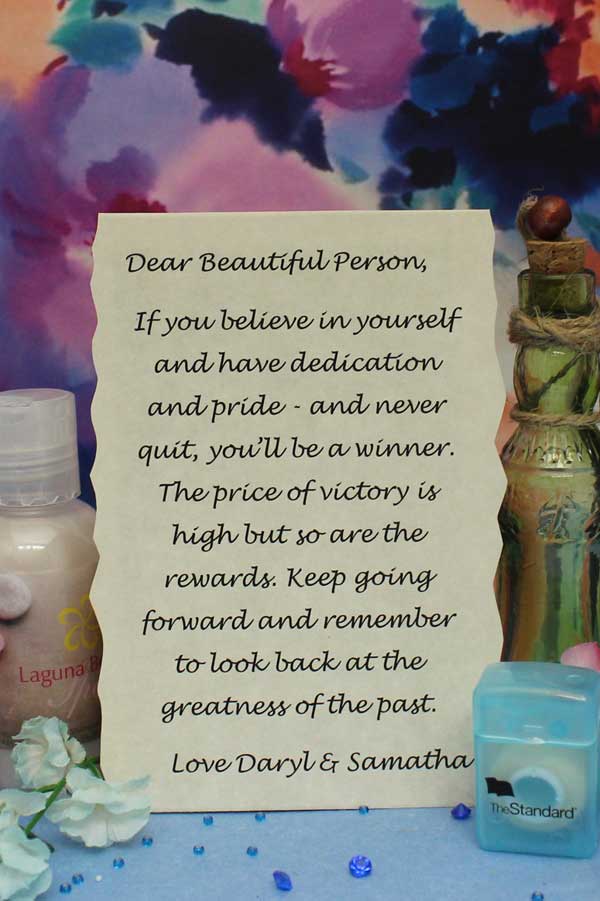 Dear Beautiful Person,
If you believe in yourself
and have dedication
and pride - and never
quit, you'll be a winner.
The price of victory is
high but so are the
rewards. Keep going
forward and remember
to look back at the
greatness of the past.
Love Daryl & Samatha
Laguna
TheStandard